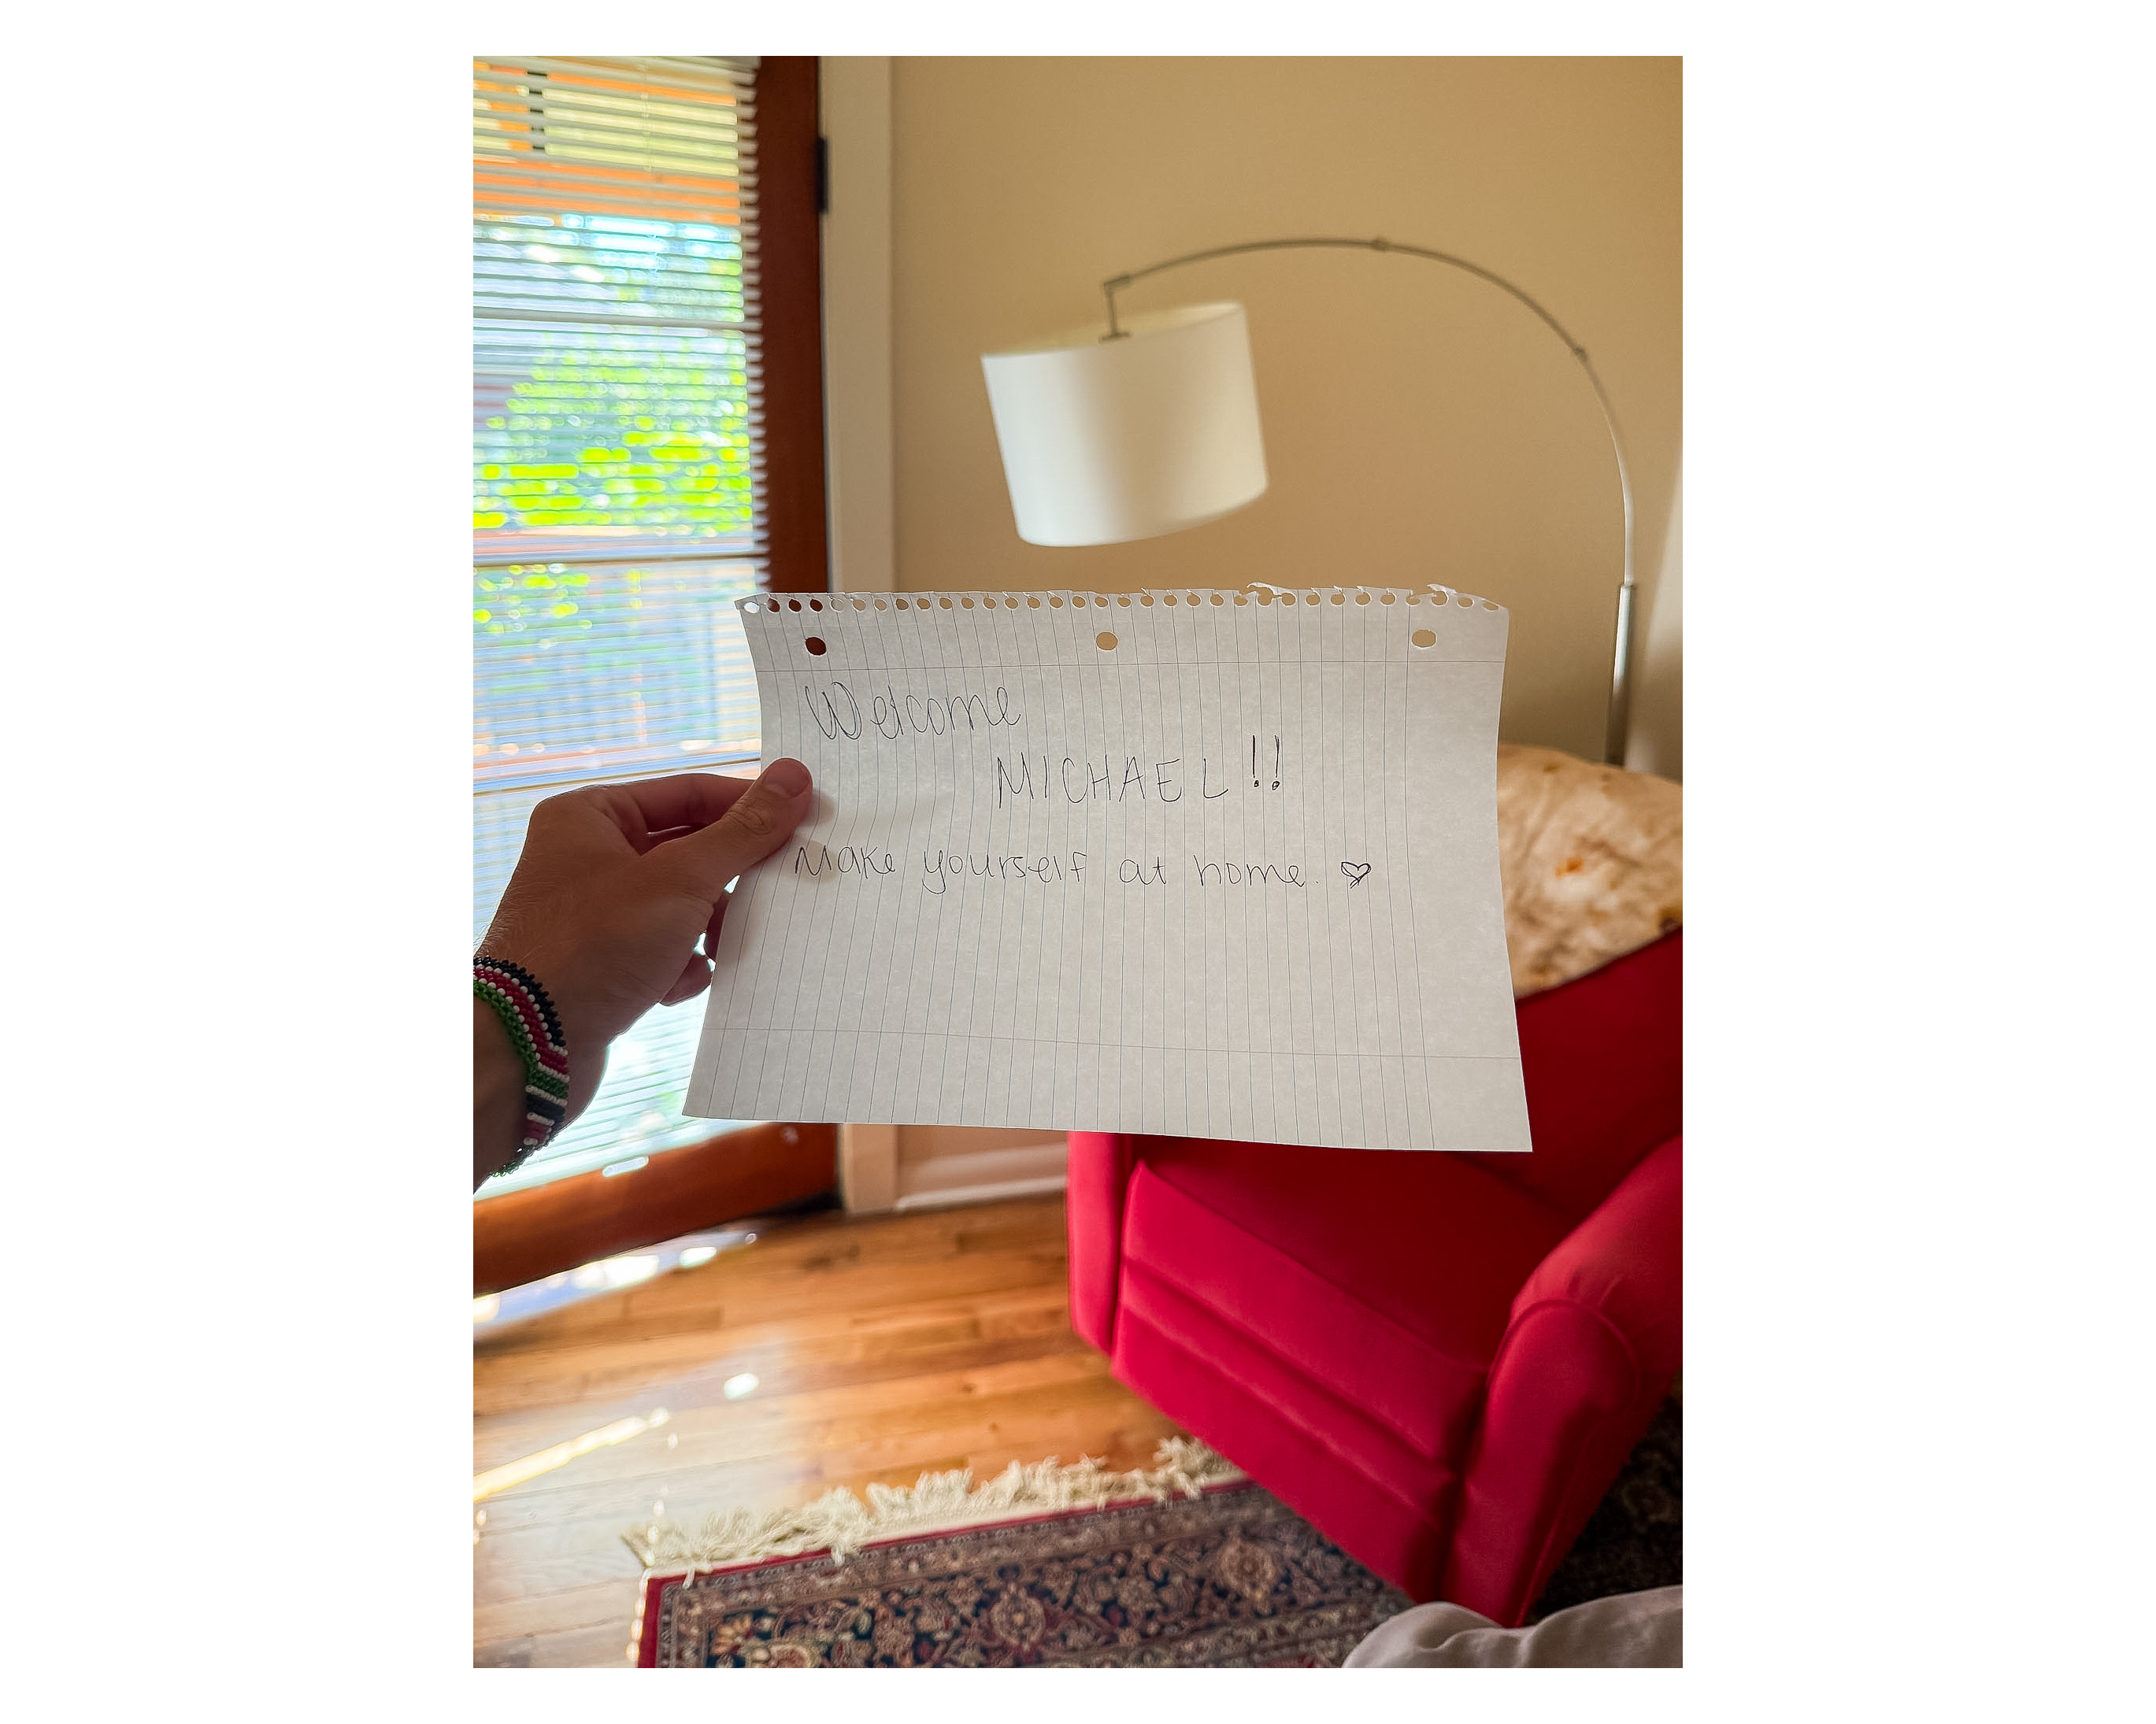 Welcome
MICHAEL!!
Make yourself at home. ♡